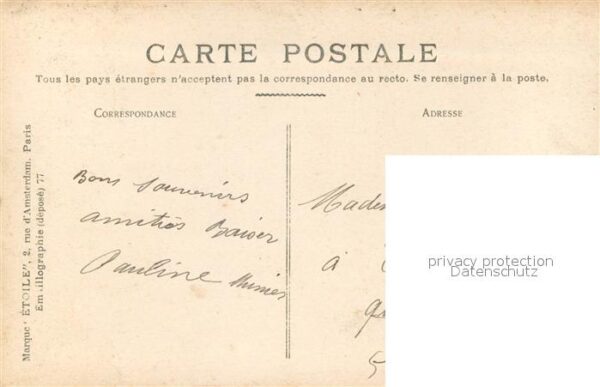 CARTE POSTALE
Tous les pays étrangers n'acceptent pas la correspondance au recto. Se renseigner à la poste.
CORRESPONDANCE
ADRESSE
Bons Souvenirs
amitiés Baiser
Pauline
à
privacy protection
Datenschutz
Marque "ÉTOILE", 2, rue d'Amsterdam, Paris
Émaillographie (déposé) 77.